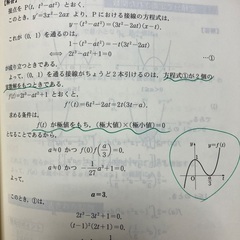 接点をP(t, t³−at²)とおく.
このとき, y'=3x²−2ax より, Pにおける接線の方程式は
y−(t³−at²)=(3t²−2at)(x−t).
これが(0, 1)を通るのは,
1−(t³−at²)=−t(3t²−2at)
⟺ 2t³−at²+1=0 …①
が成り立つときである.
よって, (0, 1)を通る接線がちょうど2本引けるのは, 方程式①が2個の
実数解をもつときである.
f(t)=2t³−at²+1 とおくと,
f'(t)=6t²−2at=2t(3t−a).
求める条件は,
f(t)が極値をもち, (極大値)×(極小値)=0
となることであるから,
a≠0 かつ f(0)f(a/3)=0.
a≠0 かつ −1/27 a³+1=0.
よって,
a=3.
このとき, ①は,
2t³−3t²+1=0.
(t−1)²(2t+1)=0.
y
y=f(t)
O
a/3
t